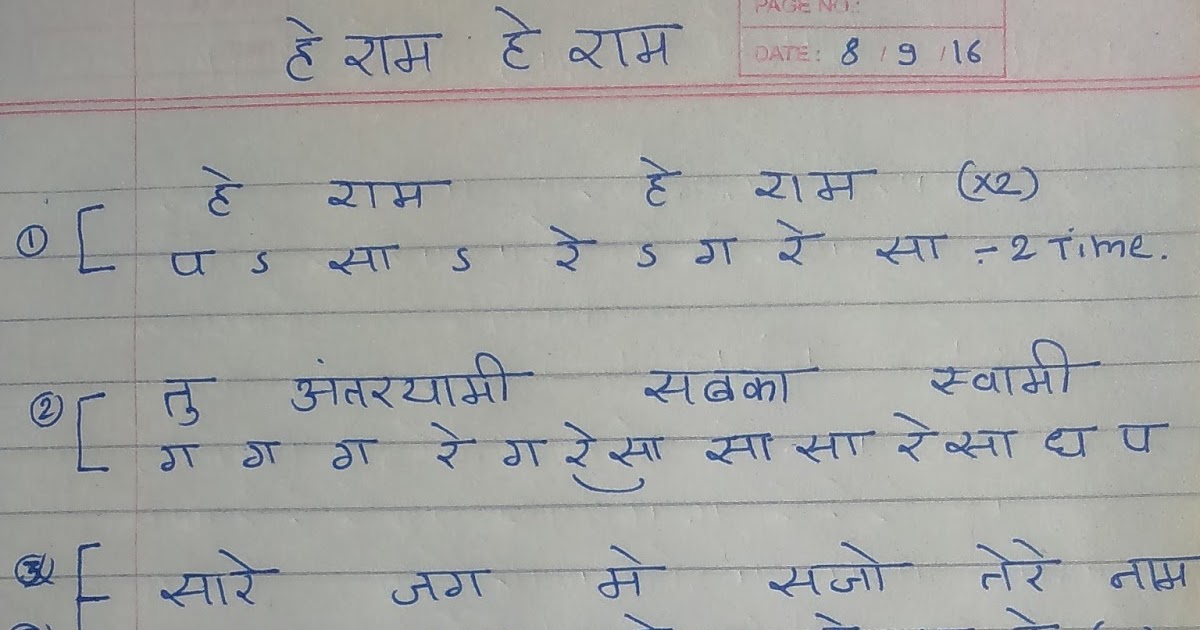 PAGE NO.:
हे राम हे राम
DATE: 8 / 9 / 16
हे राम हे राम (x2)
① प ऽ सा ऽ रे ऽ ग रे सा ÷ 2 Time.
② तु अंतरयामी सबका स्वामी
ग ग ग रे ग रेसा सा सा रे सा ध प
③ सारे जग मे सजो तेरे नाम